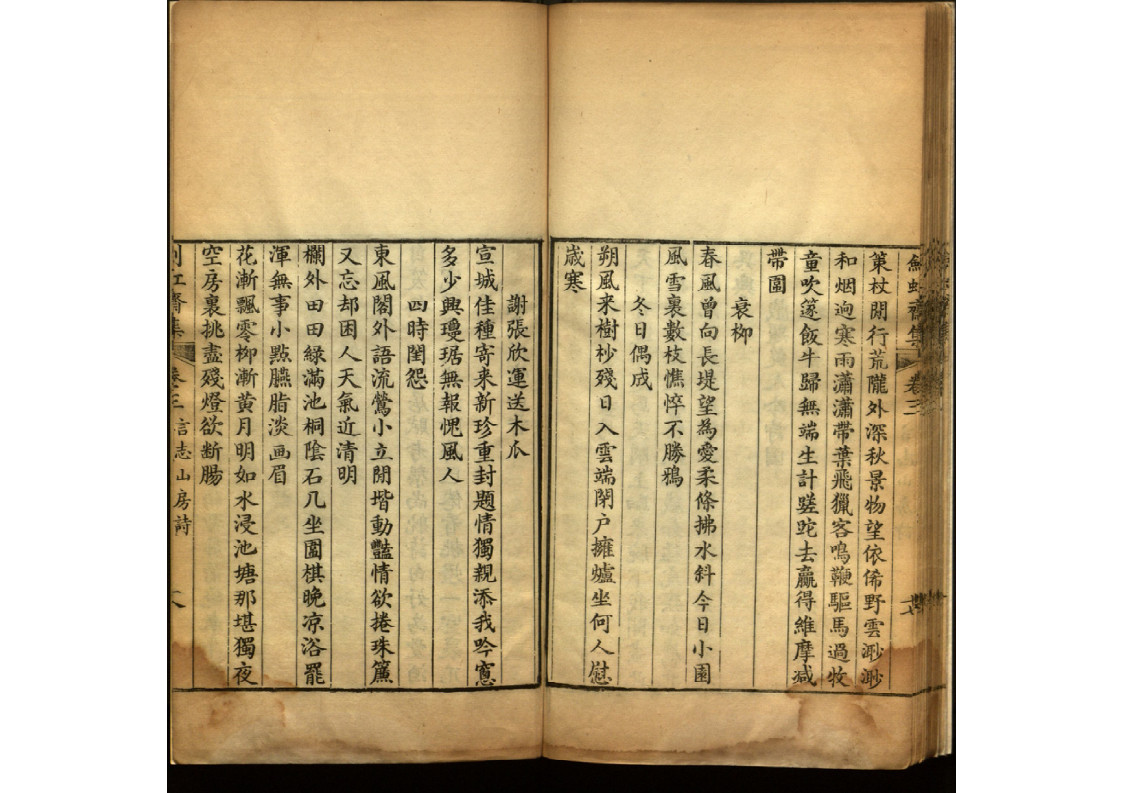 策杖閒行荒隴外深秋景物望依俙野雲渺渺
和烟逈寒雨瀟瀟帶葉飛獵客鳴鞭驅馬過牧
童吹篴飯牛歸無端生計蹉跎去贏得維摩减
帶圍
衰柳
春風曾向長堤望為愛柔條拂水斜今日小園
風雪裏數枝憔悴不勝鴉
冬日偶成
朔風来樹杪殘日入雲端閉户擁爐坐何人慰
歲寒
謝張欣運送木瓜
宣城佳種寄来新珍重封題情獨親添我吟窻
多少興瓊琚無報愧風人
四時閨怨
東風閣外語流鶯小立閒堦動豔情欲捲珠簾
又忘却困人天氣近清明
欄外田田綠滿池桐陰石几坐圍棋晚凉浴罷
渾無事小點臙脂淡画眉
花漸飄零柳漸黄月明如水浸池塘那堪獨夜
空房裏挑盡殘燈欲断腸
齋集 卷三 言志山房詩